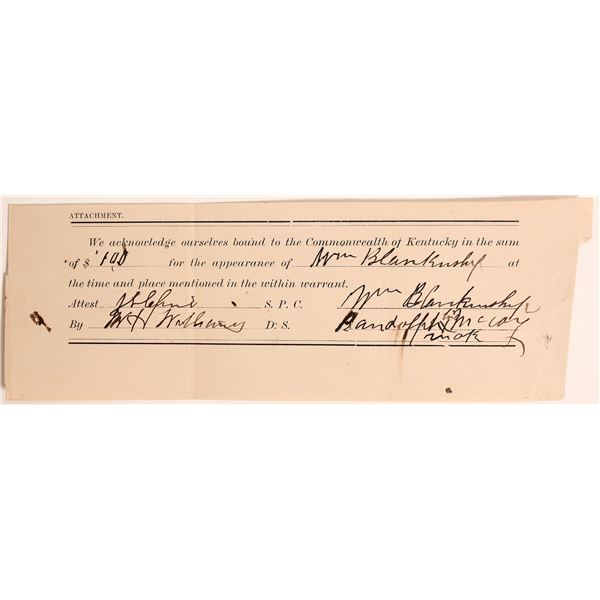 ATTACHMENT.
We acknowledge ourselves bound to the Commonwealth of Kentucky in the sum
of $ 100 for the appearance of Wm Blankinship at
the time and place mentioned in the within warrant.
Attest S. P. C. Wm Blankinship
By W H Williams D. S. Randolph McCoy
mark